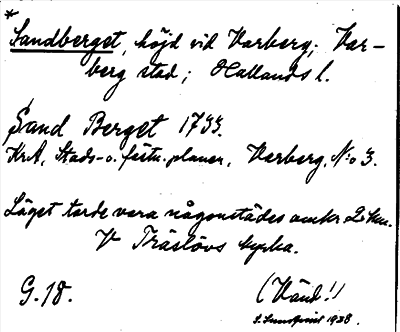 *
Sandberget, höjd vid Varberg; Var-
berg stad; Hallands l.
Sand Berget 1733.
KrA, Stads- o. fästn.planer, Varberg, N:o 3.
Läget torde vara någonstädes omkr. 2 km.
V Träslövs kyrka.
G. 18. (Vänd!)
S. Sundqvist 1928.